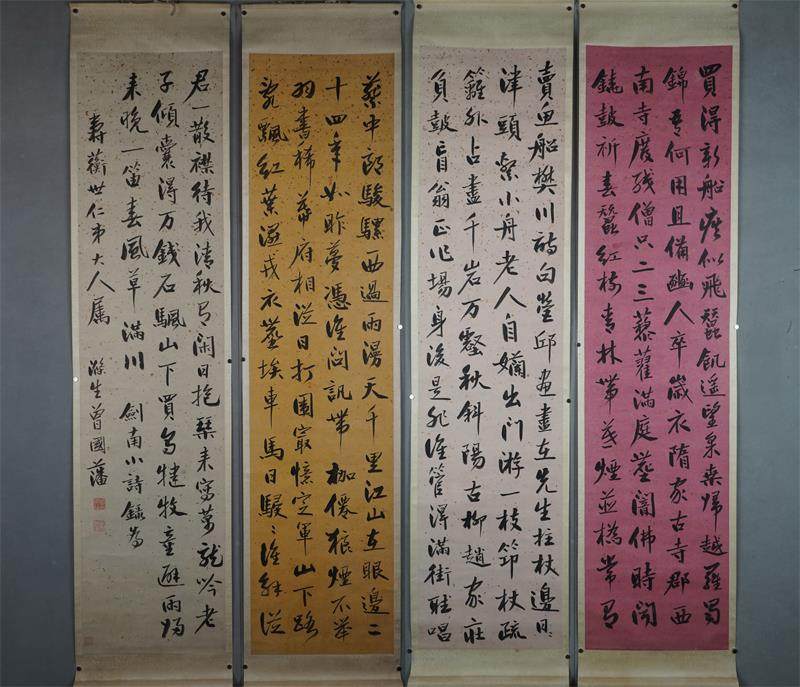 買得新船疾似飛蠶飢遙望采桑歸越羅蜀
錦吾何用且備豳人卒歲衣隋家古寺郡西
南寺廢殘僧只二三藜藿滿庭塵闇佛時聞
鐃鼓祈春蠶紅樹青林帶暮煙並橋常有
賣魚船樊川詩句營邱畫盡在先生拄杖邊日日
津頭繫小舟老人自嬾出門游一枝筇杖疏
籬外占盡千岩万壑秋斜陽古柳趙家莊
負鼓盲翁正作場身後是非誰管得滿街聽唱
蔡中郎駿騾西過雨漫天千里江山在眼邊二
十四年如昨夢憑誰問訊帶枷僊狼煙不舉
羽書稀幕府相從日打圍最憶定軍山下路
亂飄紅葉滿戎衣塵埃車馬日駸駸誰解從
君一散襟待我清秋有閑日抱琴來寫萬龍吟老
子傾囊得万錢石驅山下買烏犍牧童避雨歸
來晚一笛春風草滿川 劍南小詩錄為
壽蘅世仁弟大人屬 滌生曾國藩